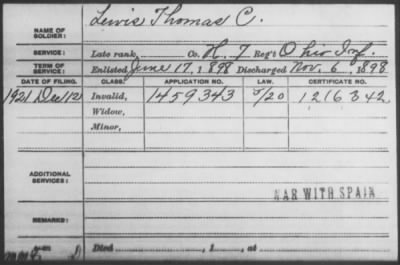 NAME OF SOLDIER: Lewis Thomas C.
SERVICE: Late rank, Co. H, 7 Reg't Ohio Inf.
TERM OF SERVICE: Enlisted June 17, 1898 Discharged Nov. 6, 1898
DATE OF FILING. CLASS. APPLICATION NO. LAW. CERTIFICATE NO.
1921 Dec 12 Invalid, 1459343 5/20 1216342
Widow,
Minor,
ADDITIONAL SERVICES:
WAR WITH SPAIN
REMARKS:
Died , 1 , at